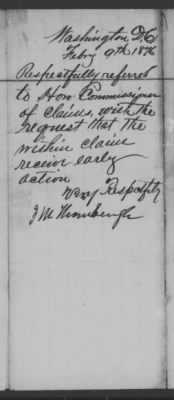 Washington D.C.
Febry 9th 1876
Respectfully referred
to Hon. Commissioner
of Claims, with the
request that the
within claim
receive early
action
Very Respctfly
J M Thornburgh